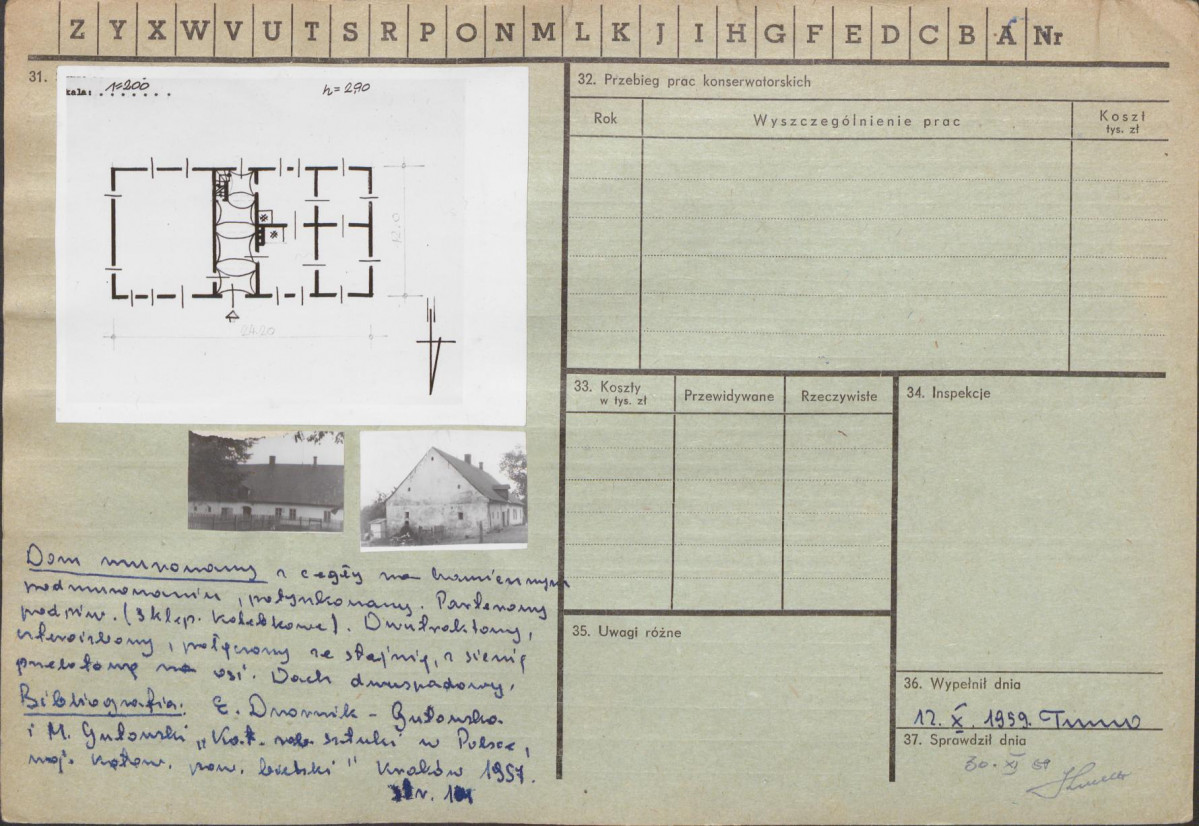 Z Y X W V U T S R P O N M L K J I H G F E D C B A Nr
31.
kala: 1=200
h=290
12.10
24.20
Dom murowany z cegły na kamiennym
podmurowaniu, potynkowany. Parterowy
podpiw. (sklep. kolebkowe). Dwutraktowy,
czteroizbowy, połączony ze stajnią, z sienią
przelotową na osi. Dach dwuspadowy.
Bibliografia. E. Dwornik-Gutowska
i M. Gutowski „Kat. zab. sztuki w Polsce,
woj. katow. pow. bielski" Kraków 1957.
32. Przebieg prac konserwatorskich
Rok
Wyszczególnienie prac
Koszt
tys. zł
33. Koszty
w tys. zł
Przewidywane
Rzeczywiste
34. Inspekcje
35. Uwagi różne
36. Wypełnił dnia
12. X. 1959.
37. Sprawdził dnia
30. XI 59